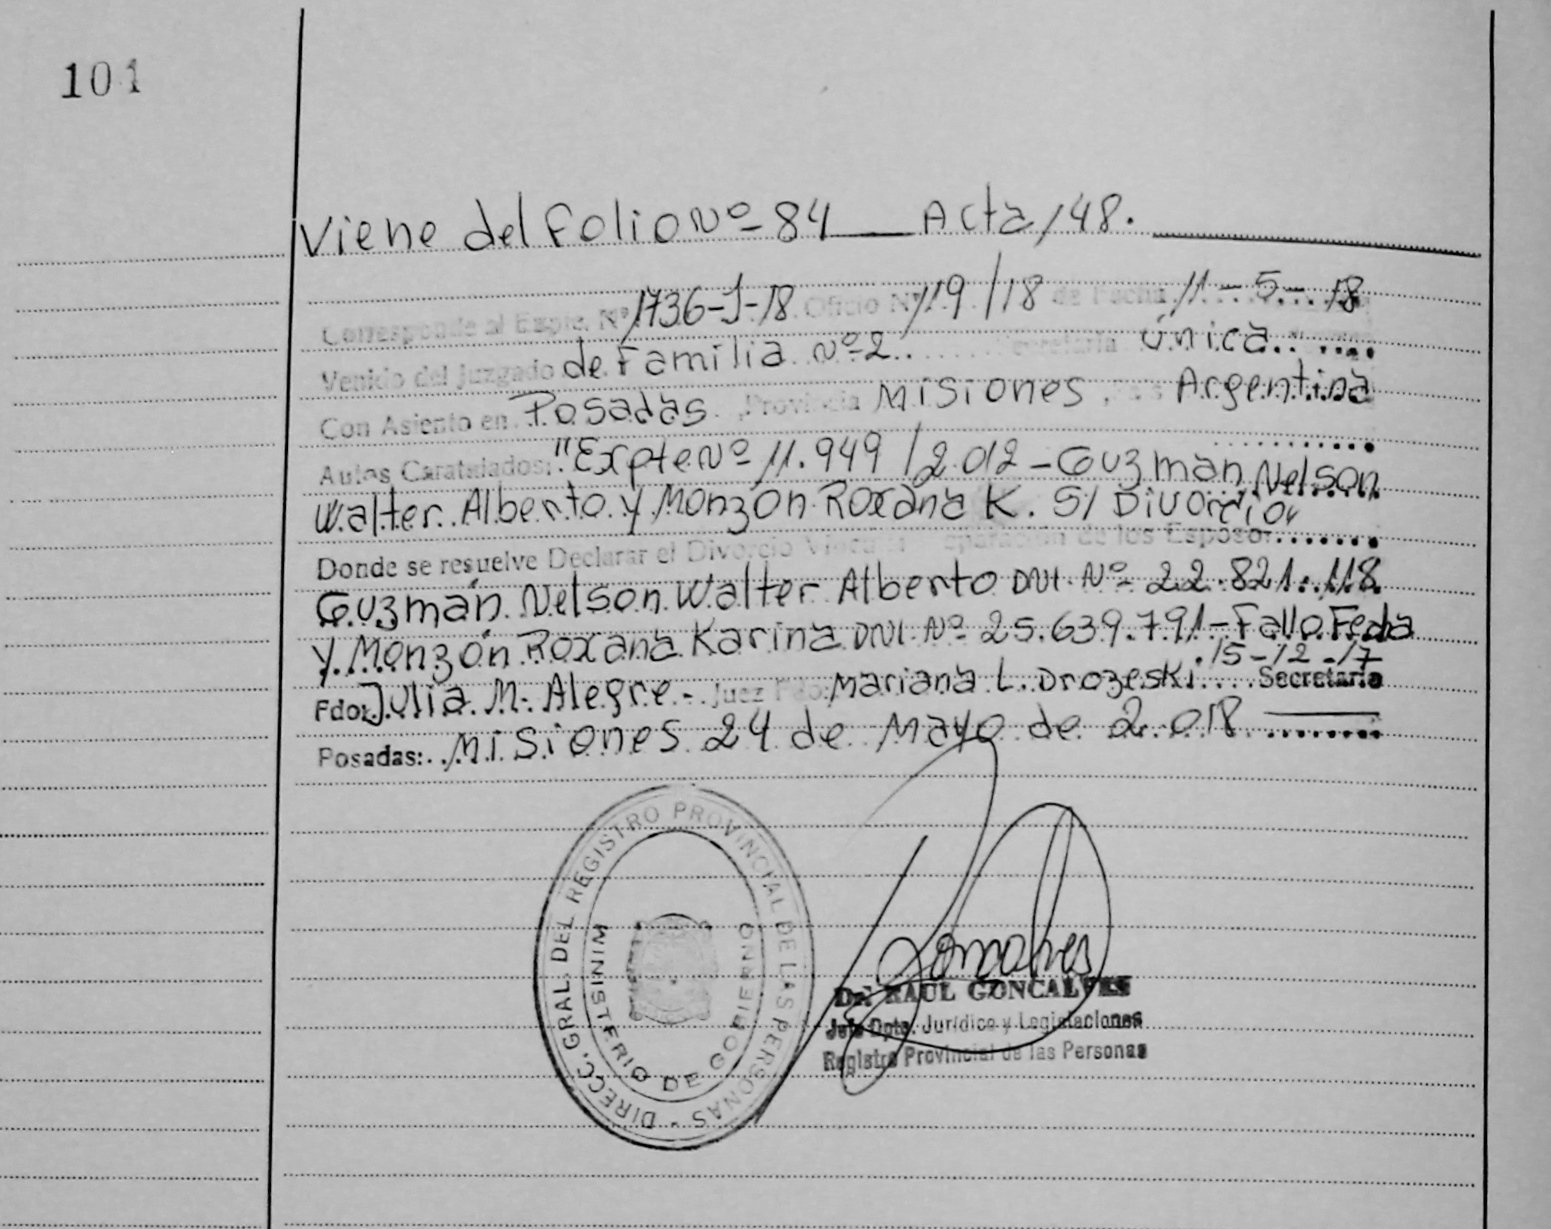 101
Viene del Folio Nº 84 Acta 148.
Corresponde al Expte. Nº 1736-J-18 Oficio Nº 119/18 de Fecha 11-5-18
Venido del Juzgado de Familia Nº 2. Secretaría única.
Con Asiento en Posadas. Provincia Misiones, Argentina
Autos Caratulados: "Expte Nº 11.949/2.012 - Guzmán Nelson
Walter Alberto y Monzón Roxana K. S/ Divorcio"
Donde se resuelve Declarar el Divorcio Vincular Separación de los Esposo
Guzmán Nelson Walter Alberto DNI Nº 22.821.118
y Monzón Roxana Karina DNI Nº 25.639.791 - Fallo Fecha
15-12-17
Fdo: Julia M. Alegre.- Juez Fdo. Mariana L. Drozeski. Secretaria
Posadas: Misiones 24 de Mayo de 2.018
DIRECC. GRAL. DEL REGISTRO PROVINCIAL DE LAS PERSONAS -
MINISTERIO DE GOBIERNO
Goncalves
Dr. RAUL GONCALVES
Jefe Dpto. Jurídico y Legislaciones
Registro Provincial de las Personas